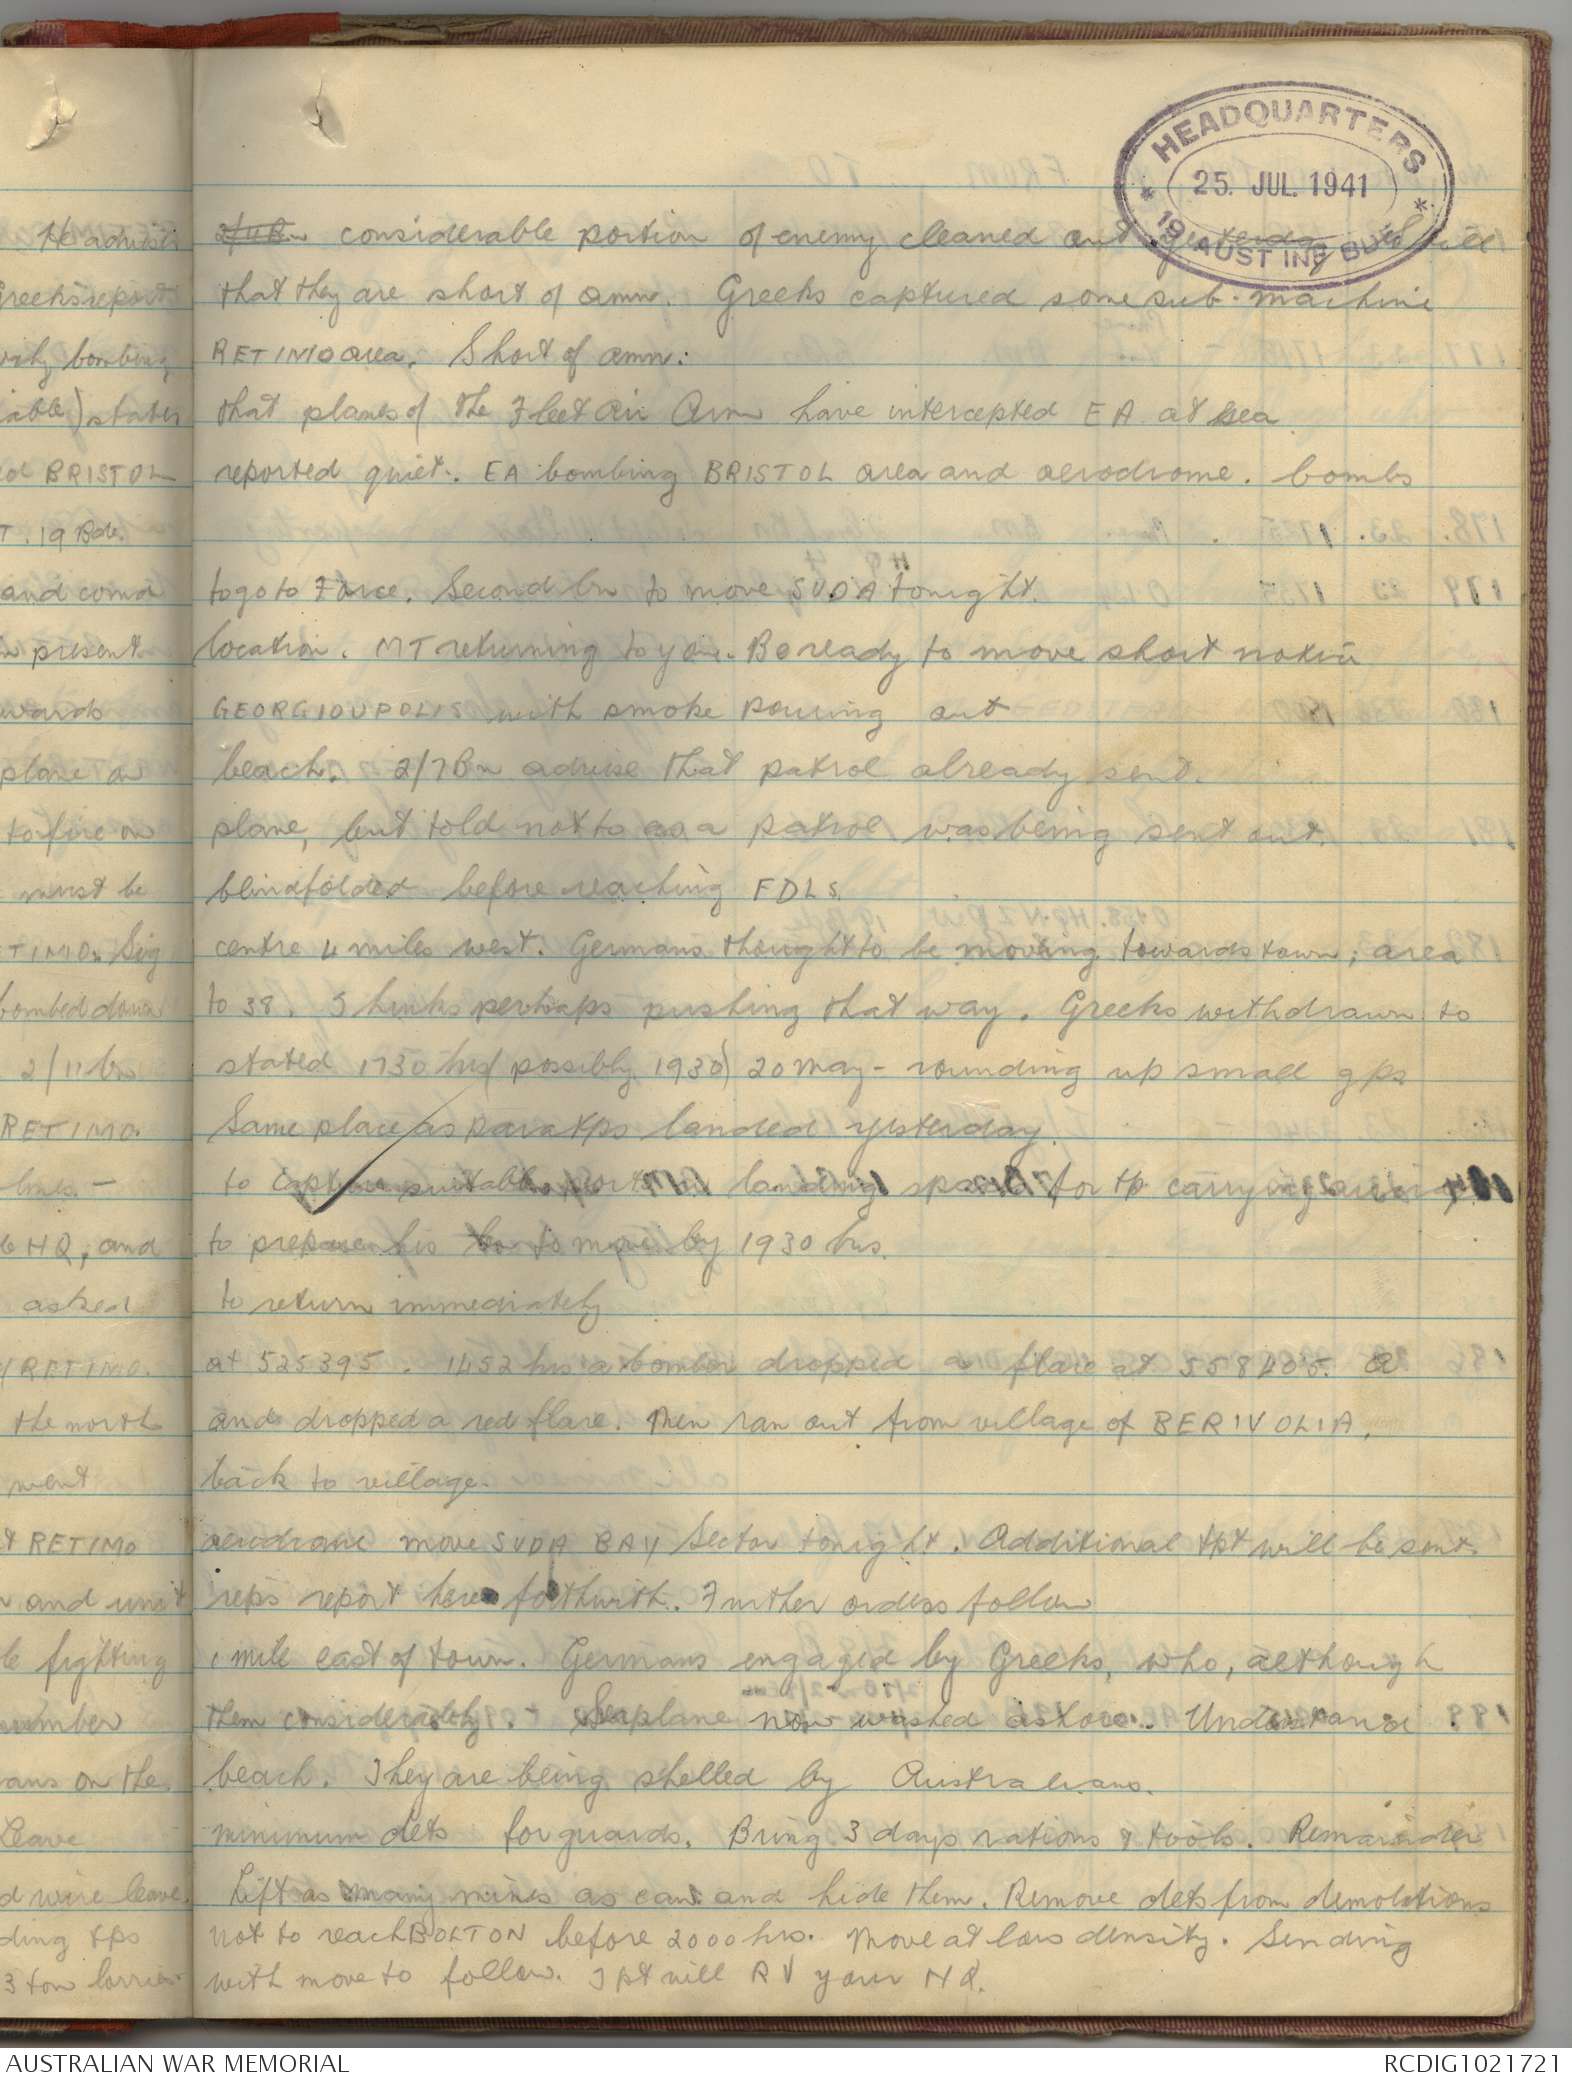 HEADQUARTERS
25. JUL. 1941
19 AUST INF BDE
considerable portion of enemy cleaned out yesterday, but still
that they are short of amn. Greeks captured some sub-machine
RETIMO area. Short of amn.
that planes of the Fleet Air Arm have intercepted EA at sea
reported quiet. EA bombing BRISTOL area and aerodrome. bombs
to go to Force. Second bn to move SUDA tonight.
location. MT returning to you. Be ready to move short notice
GEORGIOUPOLIS with smoke pouring out
beach. 2/7 Bn advise that patrol already sent.
plane, but told not to as a patrol was being sent out.
blindfolded before reaching FDLs.
centre 4 miles west. Germans thought to be moving towards town; area
to 38. Thinks perhaps pushing that way. Greeks withdrawn to
stated 1730 hrs (possibly 1930) 20 May - rounding up small gps
Same place as paratps landed yesterday.
to capture suitable ports or landing space for tp carrying
to prepare his bn to move by 1930 hrs.
to return immediately
at 525395. 1452 hrs a bomber dropped a flare at 558405. A
and dropped a red flare. Men ran out from village of BERIVOLIA,
back to village.
aerodrome move SUDA BAY Sector tonight. Additional tpt will be sent.
reps report here forthwith. Further orders follow
1 mile east of town. Germans engaged by Greeks, who, although
them considerably. - Seaplane now washed ashore. Understand
beach. They are being shelled by Australians.
minimum dets for guards. Bring 3 days rations & tools. Remainder
Lift as many mines as can and hide them. Remove dets from demolitions
not to reach BOLTON before 2000 hrs. Move at low density. Sending
with move to follow. Tpt will RV your HQ.
He advises
Greeks report
bombing
iable) states
ed BRISTOL
T. 19 Bde.
and comd
present
wards
plane on
to fire on
must be
ETIMO. Sig
bombed down
2/11 bn
RETIMO.
lines. -
HQ, and
asked
RETIMO.
the north
went
at RETIMO
and unit
fighting
number
ans on the
Leave
d wire leave
ding tps
3 ton lorries
AUSTRALIAN WAR MEMORIAL
RCDIG1021721